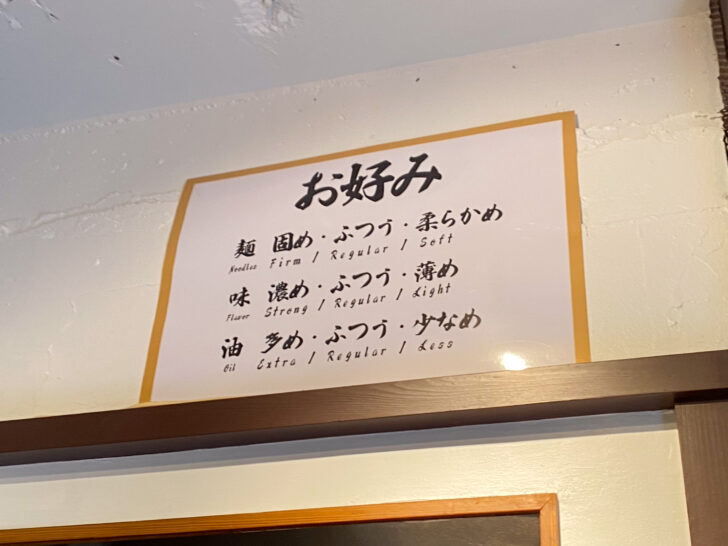 お好み
麺 固め・ふつう・柔らかめ
Noodles Firm / Regular / Soft
味 濃め・ふつう・薄め
Flavor Strong / Regular / Light
油 多め・ふつう・少なめ
Oil Extra / Regular / Less